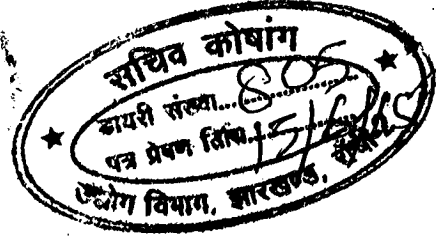 सचिव कोषांग
डायरी संख्या...805
पत्र प्रेषण तिथि...15/6/
उद्योग विभाग, झारखण्ड, राँची